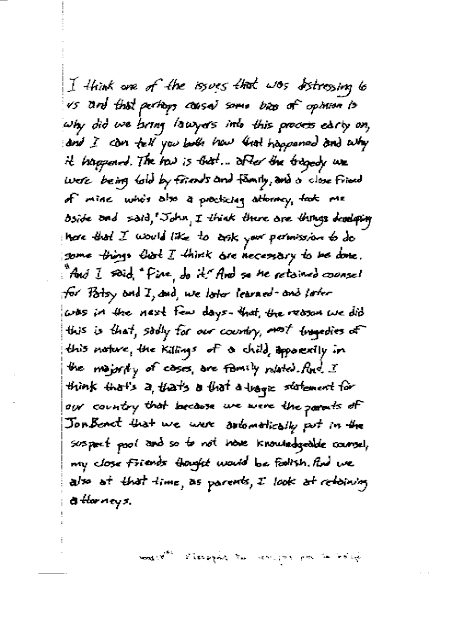 I think one of the issues that was distressing to
us and that perhaps caused some bias of opinion is
why did we bring lawyers into this process early on,
and I can tell you both how that happened and why
it happened. The how is that... after the tragedy we
were being told by friends and family, and a close friend
of mine who's also a practicing attorney, took me
aside and said, "John, I think there are things developing
here that I would like to ask your permission to do
some things that I think are necessary to be done.
"And I said, "Fine, do it." And so he retained counsel
for Patsy and I, and, we later learned - and later
was in the next few days - that, the reason we did
this is that, sadly for our country, most tragedies of
this nature, the killings of a child, apparently in
the majority of cases, are family related. And I
think that's a, that's a that a tragic statement for
our country that because we were the parents of
JonBenet that we were automatically put in the
suspect pool and so to not have knowledgeable counsel,
my close friends thought would be foolish. And we
also at that time, as parents, I look at retaining
attorneys.